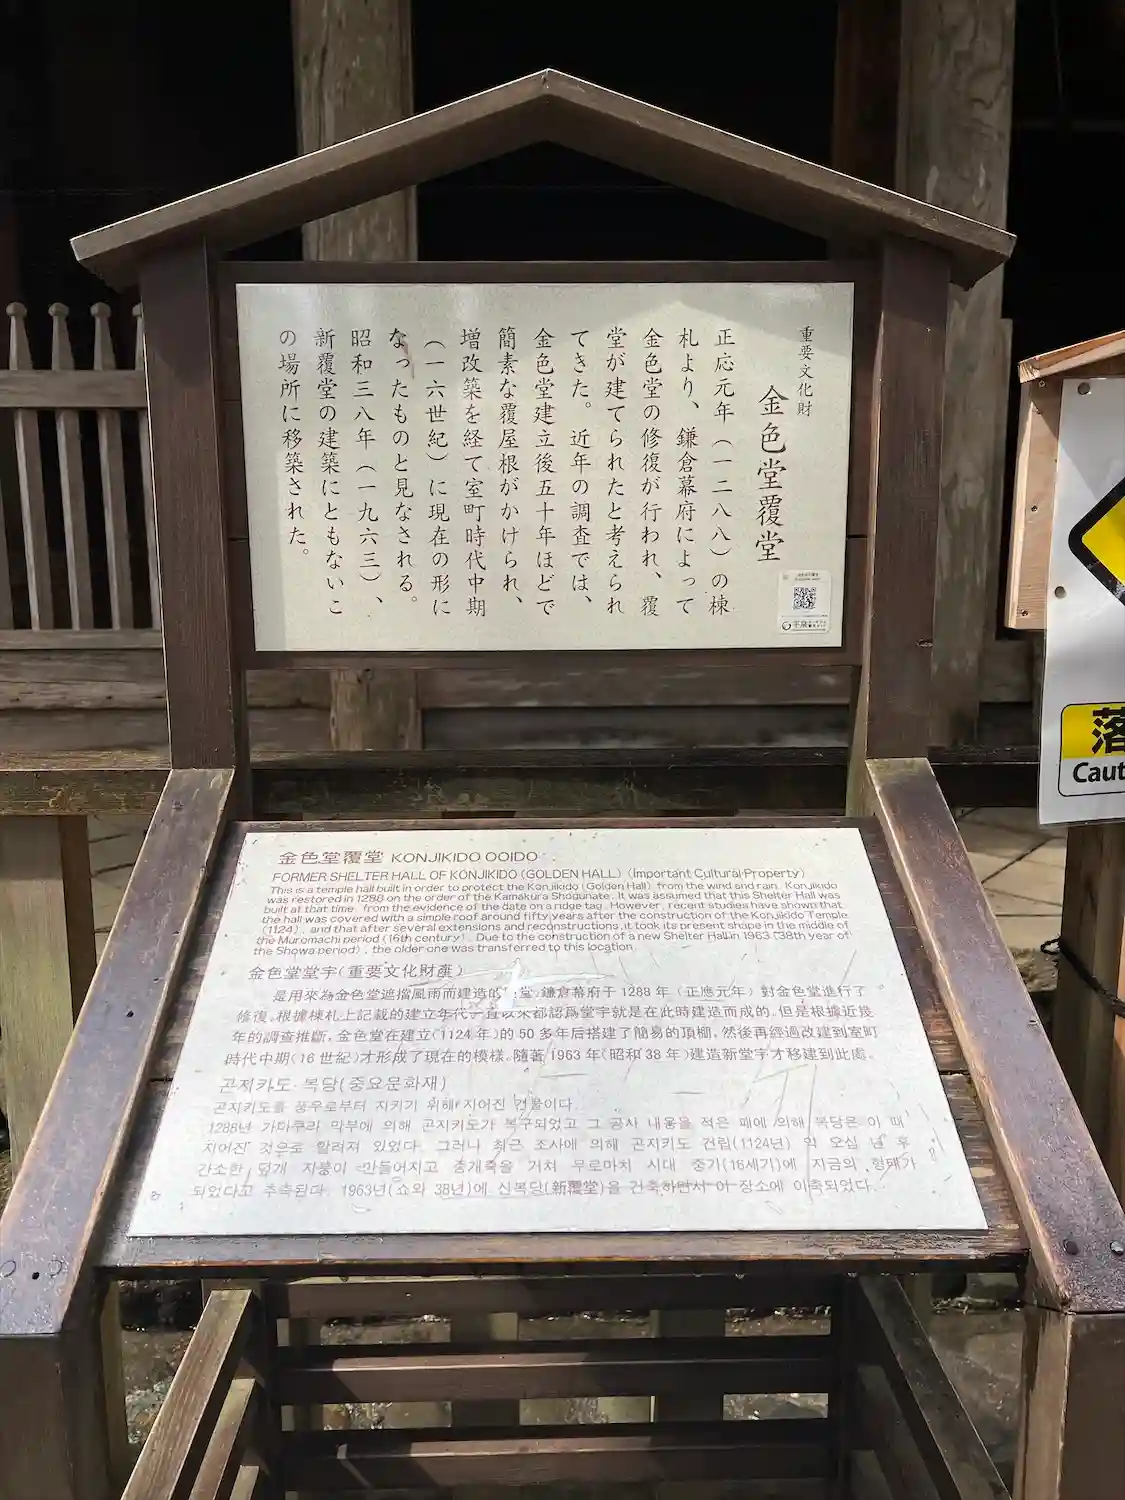 重要文化財
金色堂覆堂
正応元年（一二八八）の棟
札より、鎌倉幕府によって
金色堂の修復が行われ、覆
堂が建てられたと考えられ
てきた。近年の調査では、
金色堂建立後五十年ほどで
簡素な覆屋根がかけられ、
増改築を経て室町時代中期
（一六世紀）に現在の形に
なったものと見なされる。
昭和三八年（一九六三）、
新覆堂の建築にともないこ
の場所に移築された。
平泉
落
Caut
金色堂覆堂 KONJIKIDO OOIDO
FORMER SHELTER HALL OF KONJIKIDO (GOLDEN HALL) (Important Cultural Property)
This is a temple hall built in order to protect the Konjikido (Golden Hall) from the wind and rain. Konjikido
was restored in 1288 on the order of the Kamakura Shogunate. It was assumed that this Shelter Hall was
built at that time from the evidence of the date on a ridge tag. However, recent studies have shown that
the hall was covered with a simple roof around fifty years after the construction of the Konjikido Temple
(1124), and that after several extensions and reconstructions, it took its present shape in the middle of
the Muromachi period (16th century). Due to the construction of a new Shelter Hall in 1963 (38th year of
the Showa period), the older one was transferred to this location.
金色堂堂宇(重要文化財產)
是用來為金色堂遮擋風雨而建造的 堂。鎌倉幕府于 1288 年 (正應元年) 對金色堂進行了
修復。根據棟札上記載的建立年代一直以來都認爲堂宇就是在此時建造而成的。但是根據近
年的調查推斷，金色堂在建立(1124 年)的 50 多年后搭建了簡易的頂棚，然後再經過改建到室町
時代中期(16 世紀)才形成了現在的模樣。隨著 1963 年(昭和 38 年)建造新堂宇才移建到此處。
곤지키도 복당(중요문화재)
곤지키도를 풍우로부터 지키기 위해 지어진 건물이다.
1288년 가마쿠라 막부에 의해 곤지키도가 복구되었고 그 공사 내용을 적은 패에 의해 복당은 이 때
지어진 것으로 알려져 있었다. 그러나 최근 조사에 의해 곤지키도 건립(1124년) 약 오십 년 후
간소한 덮개 지붕이 만들어지고 증개축을 거쳐 무로마치 시대 중기(16세기)에 지금의 형태가
되었다고 추측된다. 1963년(쇼와 38년)에 신복당(新覆堂)을 건축하면서 이 장소에 이축되었다.